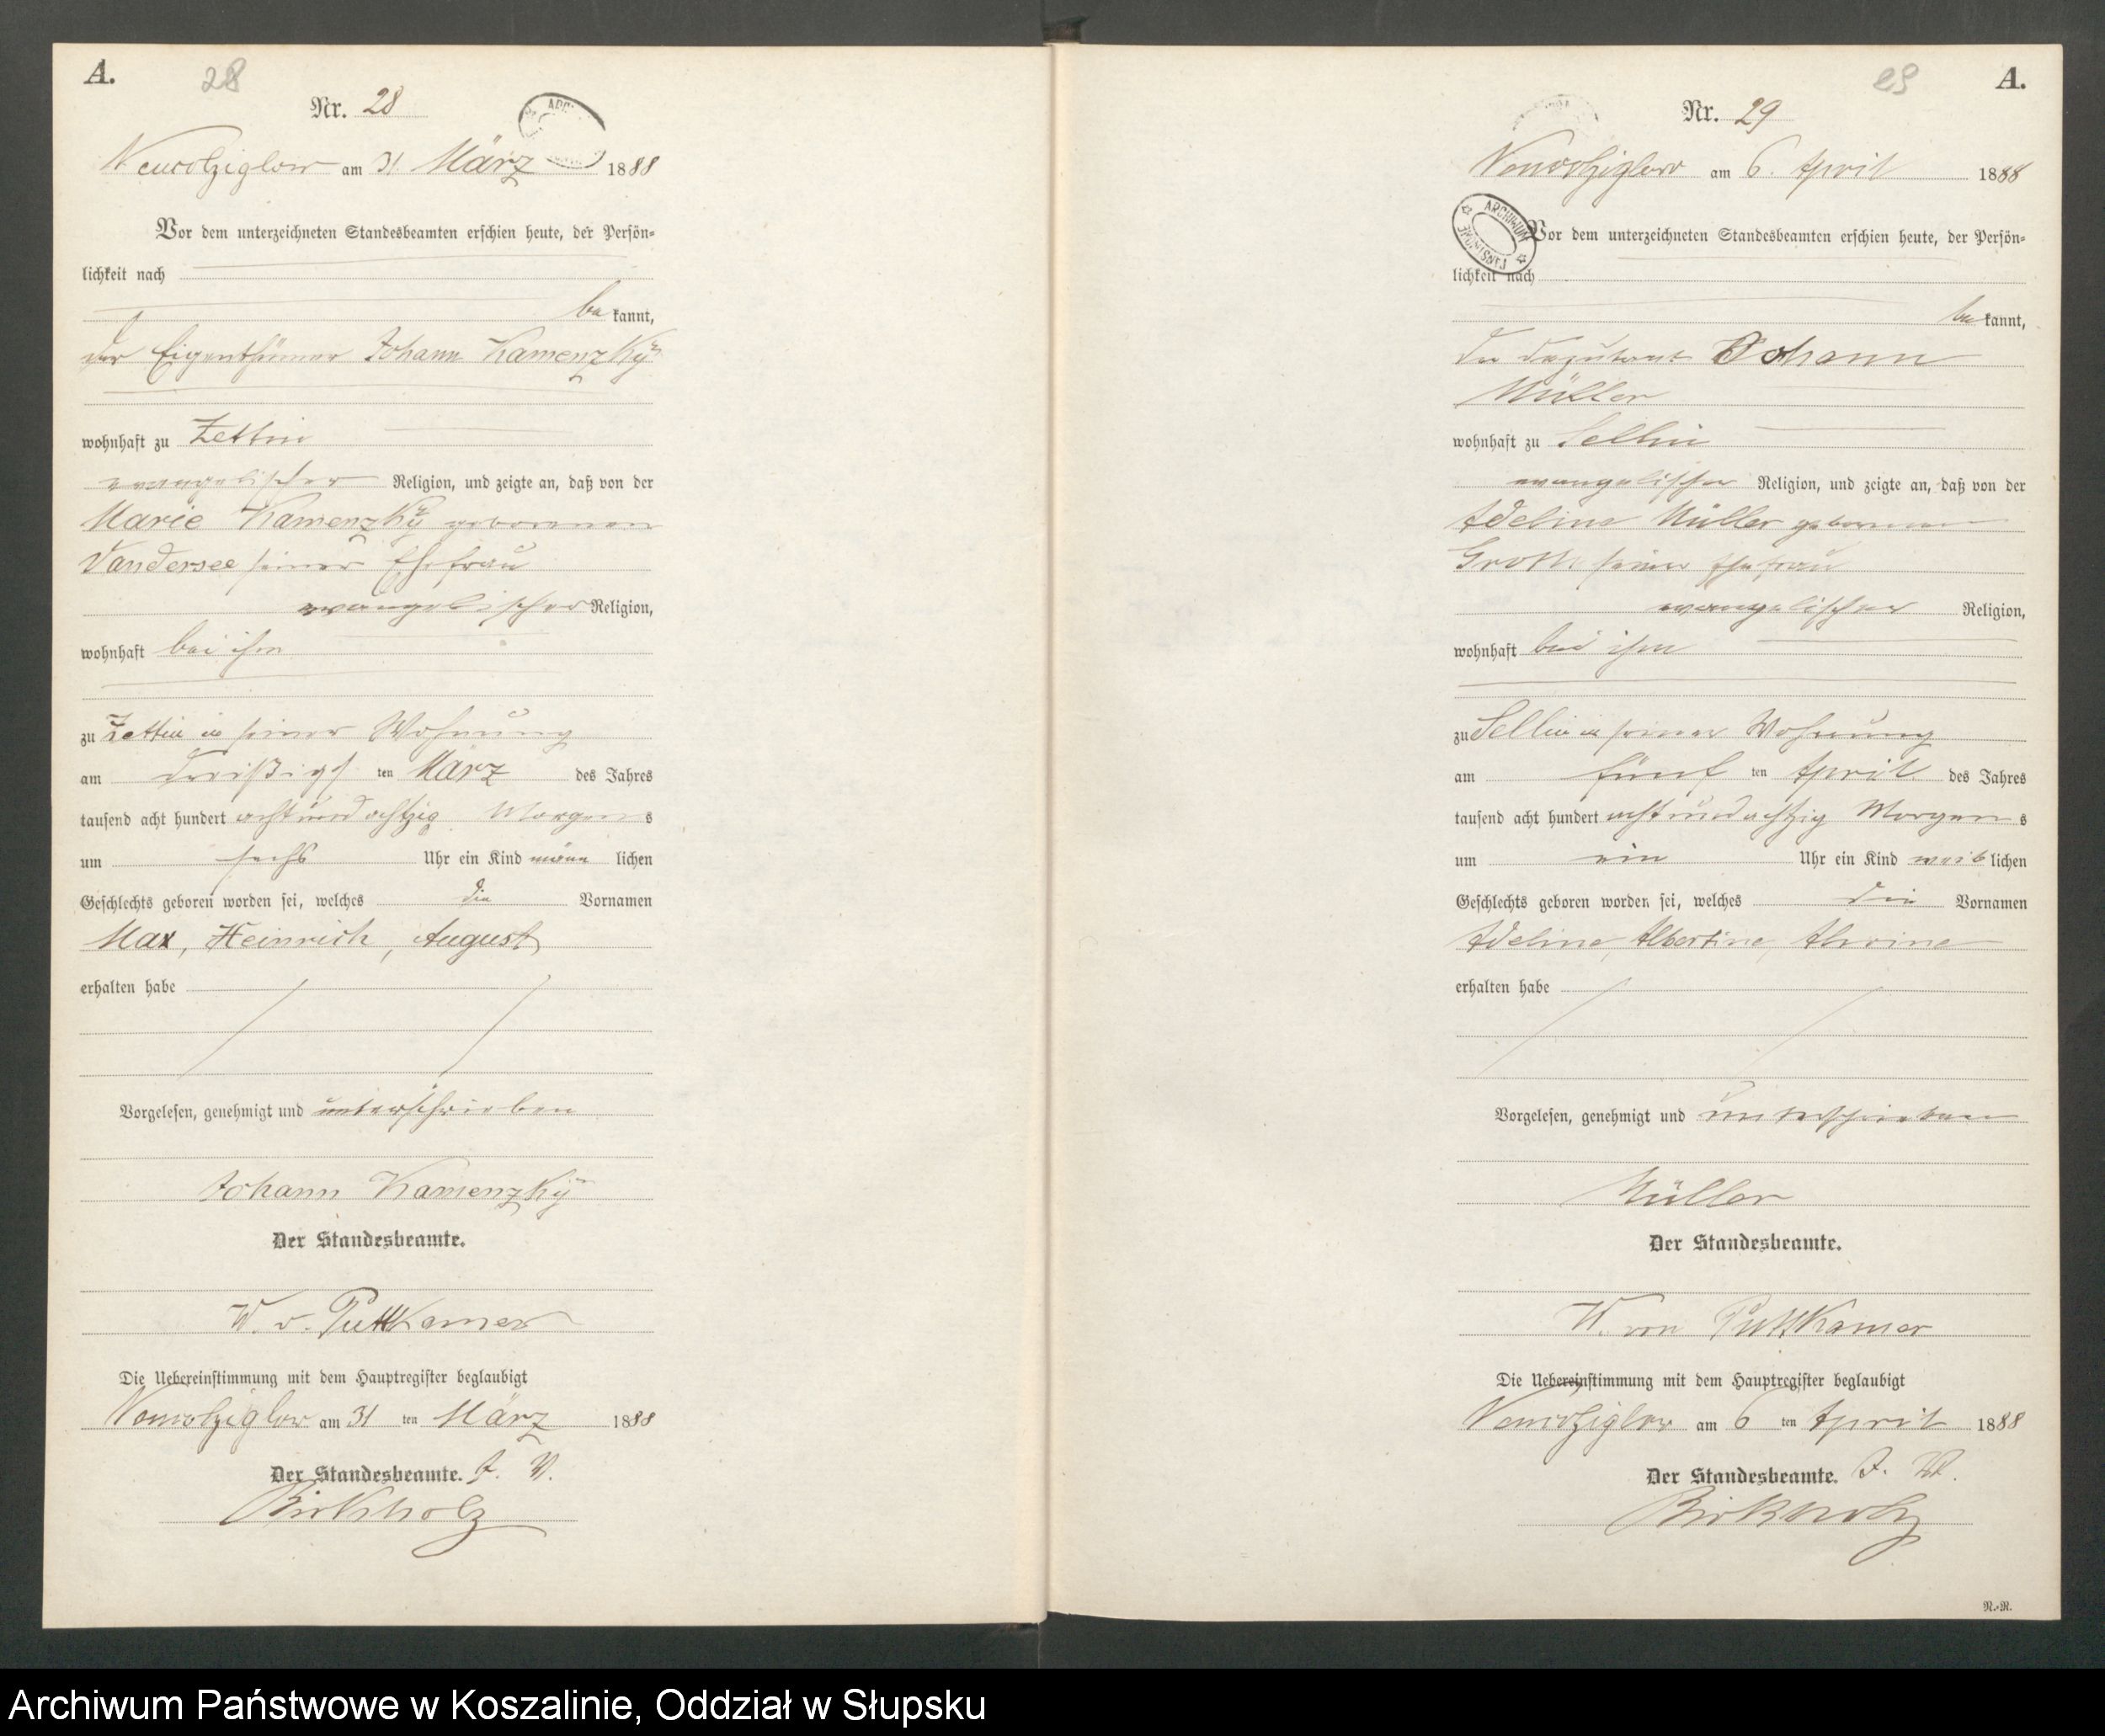 A.
28
Nr. 28
Neuwolziglow am 31. März 1888
Vor dem unterzeichneten Standesbeamten erschien heute, der Persön-
lichkeit nach
be kannt,
der Eigenthümer Johann Kamenzky
wohnhaft zu Zettin
evangelischer Religion, und zeigte an, daß von der
Marie Kamenzky geborenen
Vandersee seiner Ehefrau
evangelischer Religion,
wohnhaft bei ihm
zu Zettin in seiner Wohnung
am dreißigsten März des Jahres
tausend acht hundert achtundachtzig Morgens
um sechs Uhr ein Kind männlichen
Geschlechts geboren worden sei, welches die Vornamen
Max, Heinrich, August
erhalten habe
Vorgelesen, genehmigt und unterschrieben
Johann Kamenzky
Der Standesbeamte.
W. v. Puttkamer
Die Uebereinstimmung mit dem Hauptregister beglaubigt
Neuwolziglow am 31 ten März 1888
Der Standesbeamte. J. V.
Birkholz
A.
29
Nr. 29
Neuwolziglow am 6. April 1888
ARCHIWUM
Vor dem unterzeichneten Standesbeamten erschien heute, der Persön-
lichkeit nach
be kannt,
der Deputant Johann
Müller
wohnhaft zu Sellin
evangelischer Religion, und zeigte an, daß von der
Adeline Müller geborenen
Groth seiner Ehefrau
evangelischer Religion,
wohnhaft bei ihm
zu Sellin in seiner Wohnung
am fünf ten April des Jahres
tausend acht hundert achtundachtzig Morgens
um ein Uhr ein Kind weiblichen
Geschlechts geboren worden sei, welches die Vornamen
Adeline, Albertine, Alwine
erhalten habe
Vorgelesen, genehmigt und unterschrieben
Müller
Der Standesbeamte.
W. von Puttkamer
Die Uebereinstimmung mit dem Hauptregister beglaubigt
Neuwolziglow am 6 ten April 1888
Der Standesbeamte. J. V.
Birkholz
N.-R.
Archiwum Państwowe w Koszalinie, Oddział w Słupsku